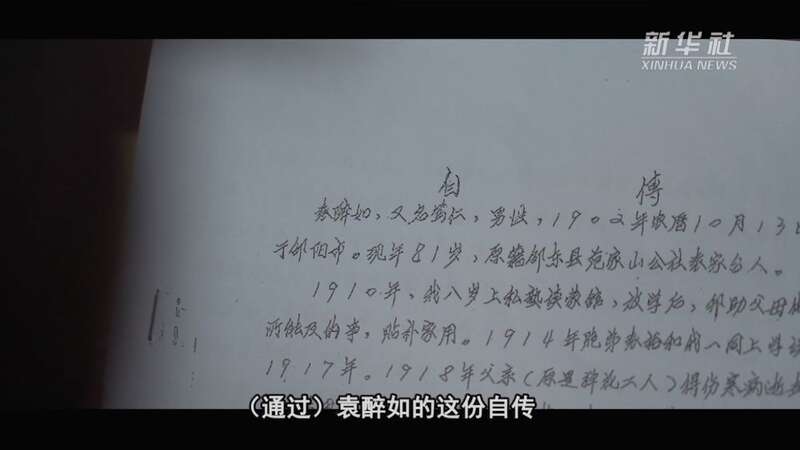 新华社
XINHUA NEWS
自 传
袁醉如,又名 ,男性,1902年农历10月13
于邵阳市。现年81岁,原籍邵东县范家山公社袁家台人。
1910年,我八岁上私塾读蒙馆,放学后,帮助父母做
所能及的事,贴补家用。1914年胞弟袁裕和我一同上学
1917年。1918年父亲(原是弹花工人)得伤寒病逝
(通过)袁醉如的这份自传